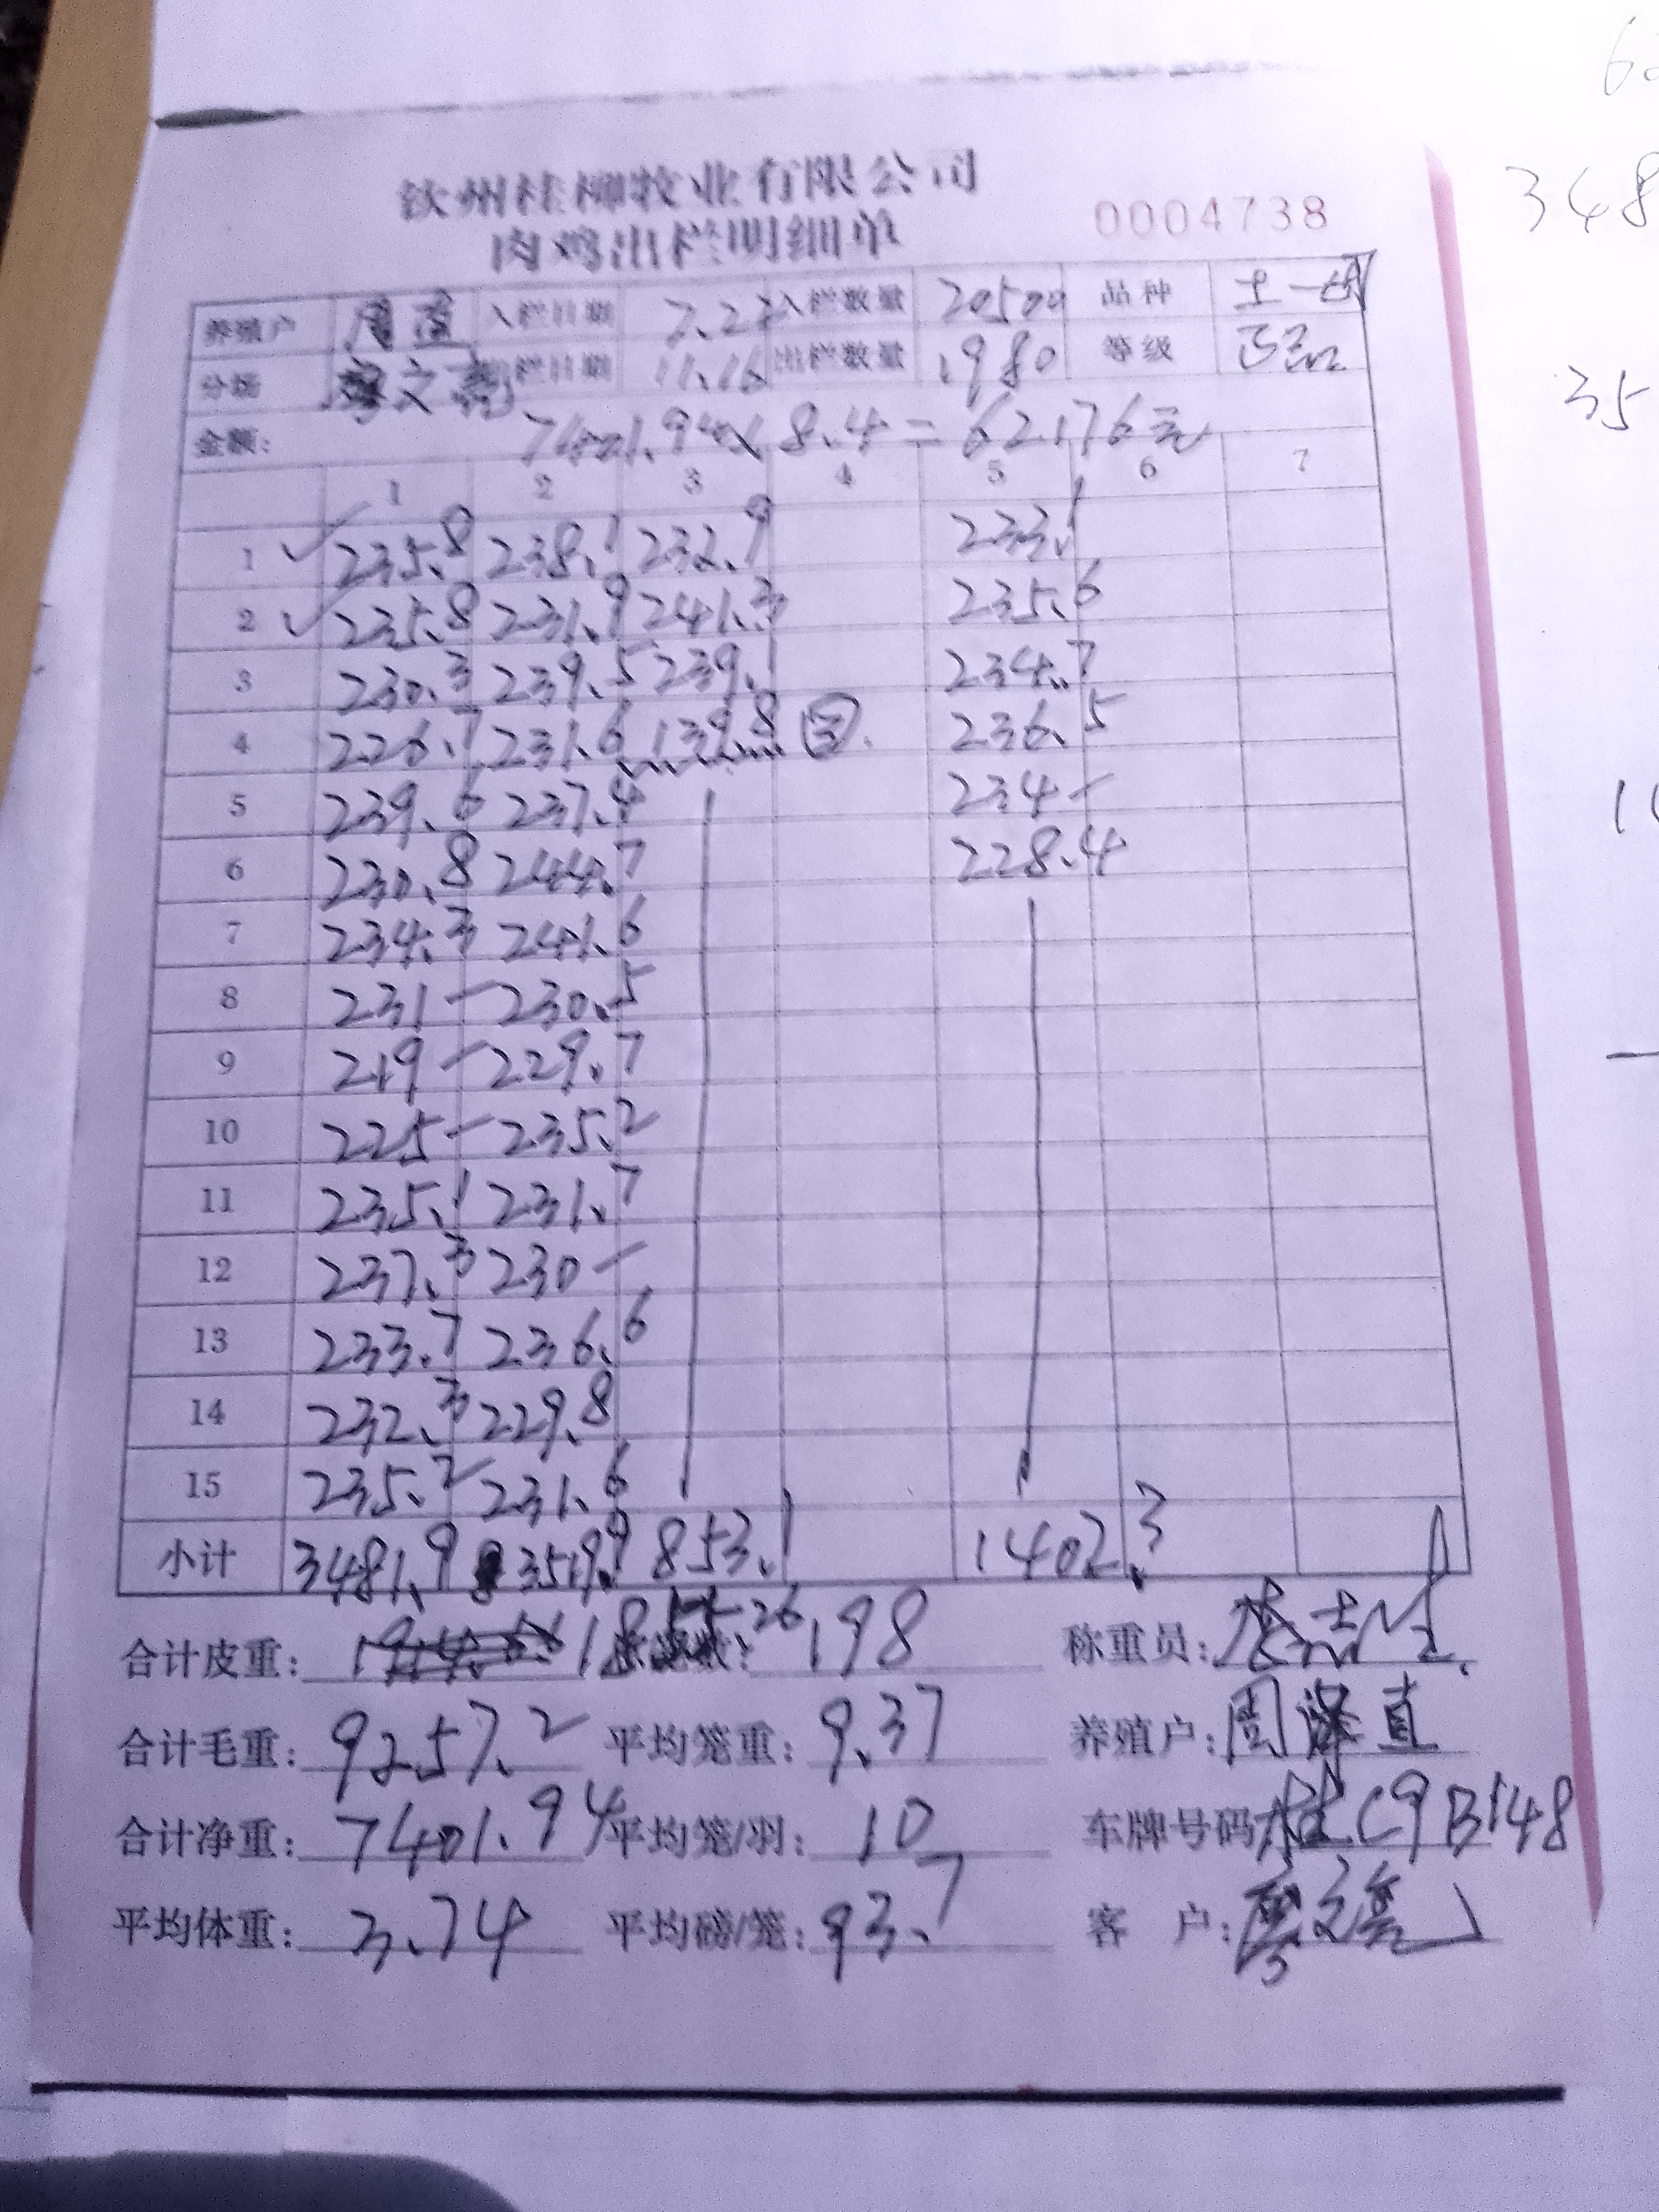 钦州桂柳牧业有限公司
肉鸡出栏明细单
0004738
养殖户 周直 入栏日期 7.27 入栏数量 20500 品种 土一
分场 廖文亮 出栏日期 11.16 出栏数量 1980 等级 正品
金额: 7401.94x8.4=62176元
1 2 3 4 5 6 7
1 235.8 238.1 232.9 233.1
2 235.8 231.9 241.3 235.6
3 230.3 239.5 239.1 234.7
4 226.7 231.6 139.8 ③. 236.5
5 239.6 237.4 234-
6 230.8 244.7 228.4
7 234.3 241.6
8 231- 230.5
9 219- 229.7
10 225- 235.2
11 235.1 231.7
12 237.3 230-
13 233.7 236.6
14 232.3 229.8
15 235.2 231.6
小计 3481.9 3519.9 853.1 1402.3
合计皮重: 1855.26 198 称重员:
合计毛重: 9257.2 平均笼重: 9.37 养殖户: 周泽直
合计净重: 7401.94 平均笼/羽: 10 车牌号码 桂C9B148
平均体重: 3.74 平均磅/笼: 93.7 客户: 廖文亮
348
35